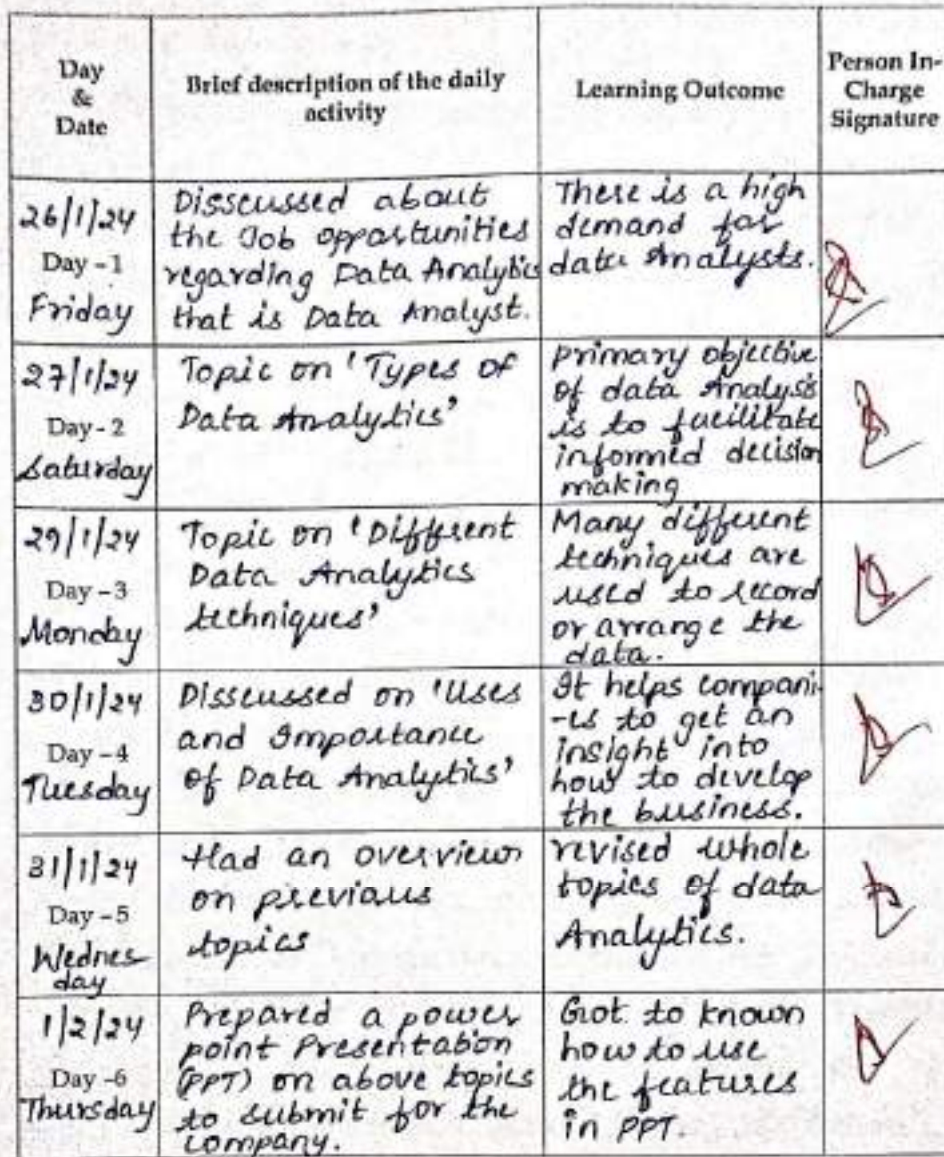 Day
&
Date
Brief description of the daily
activity
Learning Outcome
Person In-
Charge
Signature
26/1/24
Day - 1
Friday
Disscussed about
the Job opportunities
regarding Data Analytics
that is Data Analyst.
There is a high
demand for
data Analysts.
27/1/24
Day - 2
Saturday
Topic on 'Types of
Data Analytics'
primary objective
of data Analysis
is to facilitate
informed decision
making
29/1/24
Day - 3
Monday
Topic on 'Different
Data Analytics
techniques'
Many different
techniques are
used to record
or arrange the
data.
30/1/24
Day - 4
Tuesday
Disscussed on 'Uses
and Importance
of Data Analytics'
It helps compani-
-es to get an
insight into
how to develop
the business.
31/1/24
Day - 5
Wednes-
day
Had an overview
on previous
topics
revised whole
topics of data
Analytics.
1/2/24
Day -6
Thursday
Prepared a power
point Presentation
(PPT) on above topics
to submit for the
company.
Got to known
how to use
the features
in PPT.